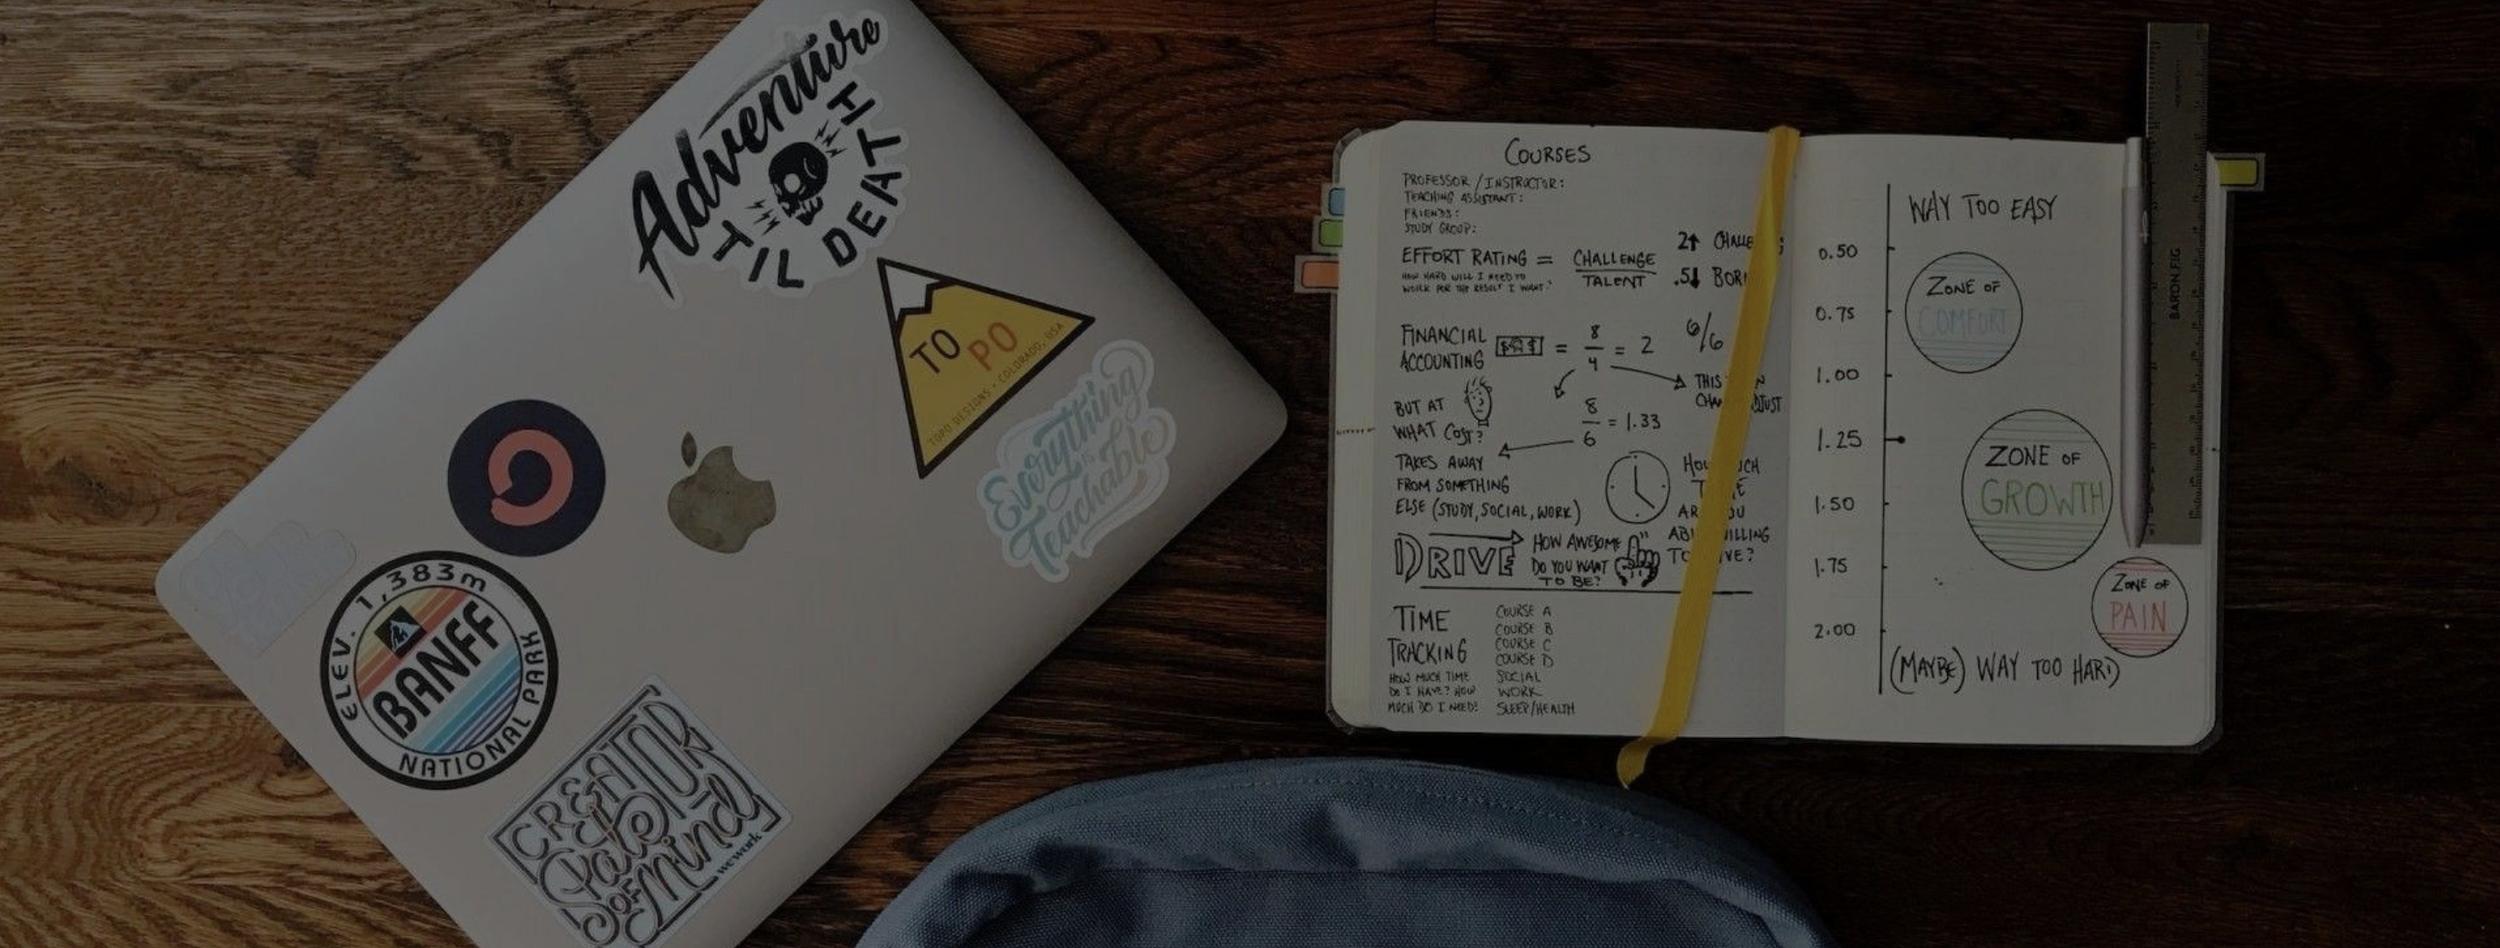 Adventure
'TIL DEATH
TO
PO
TOPO DESIGNS • COLORADO, USA
Everything
is
Teachable
ELEV. 1,383m
BANFF
NATIONAL PARK
CREATOR
State
OF
Mind
wework
COURSES
PROFESSOR / INSTRUCTOR:
TEACHING ASSISTANT:
FRIENDS:
STUDY GROUP:
EFFORT RATING = CHALLENGE
TALENT
HOW HARD WILL I NEED TO
WORK FOR THE RESULT I WANT?
2↑
.5↓
FINANCIAL
ACCOUNTING
$ $ = 8
4 = 2
6/6
THIS
BUT AT
WHAT COST?
8
6 = 1.33
TAKES AWAY
FROM SOMETHING
ELSE (STUDY, SOCIAL, WORK)
DRIVE
HOW AWESOME
DO YOU WANT
TO BE?
TIME
TRACKING
HOW MUCH TIME
DO I HAVE? HOW
MUCH DO I NEED?
COURSE A
COURSE B
COURSE C
COURSE D
SOCIAL
WORK
SLEEP/HEALTH
WAY TOO EASY
0.50
ZONE OF
COMFORT
0.75
1.00
1.25
ZONE OF
GROWTH
1.50
1.75
ZONE OF
PAIN
2.00
(MAYBE) WAY TOO HARD
BARON FIG